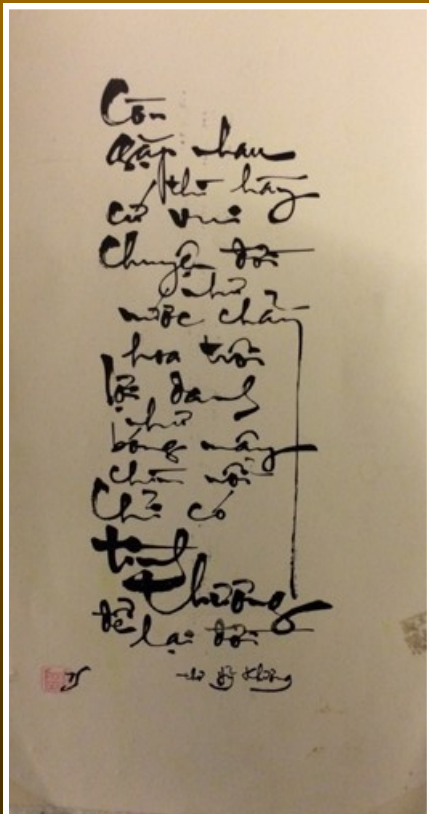 Còn
gặp nhau
thì hãy
cứ vui
Chuyện đời
như
nước chảy
hoa trôi
lợi danh
như
bóng mây
chìm nổi
Chỉ có
tình
thương
để
lại đời
thơ Hỷ Không